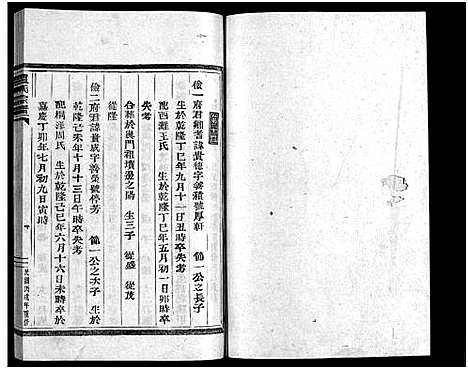 儉一府君鄉耆諱貴德字善積號厚軒 節一公之長子
生於乾隆丁巳年九月十一日丑時卒於
失考
配西灘王氏 生於乾隆丁巳年五月初一日卯時卒於
失考
合葬於與門祖墳邊之陽 生三子 從盛 從茂
從隆
儉二府君諱貴成字善榮號停芳 節一公之次子 生於
乾隆己未年十月十三日午時卒失考
配桐洋周氏 生於乾隆己巳年六月十六日未時卒於
嘉慶丁卯年七月初九日寅時